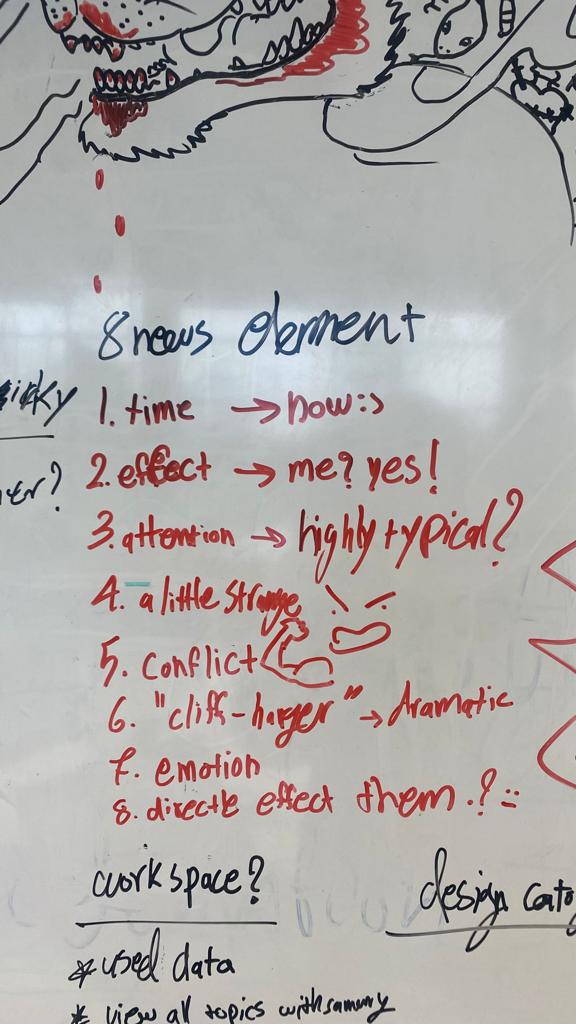 8 news element
1. time → now :>
2. effect → me? yes!
3. attention → highly typical?
4. a little strange
5. conflict
6. "cliff-hanger" → dramatic
7. emotion
8. directle effect them.? :=
workspace?
* used data
* view all topics with
design